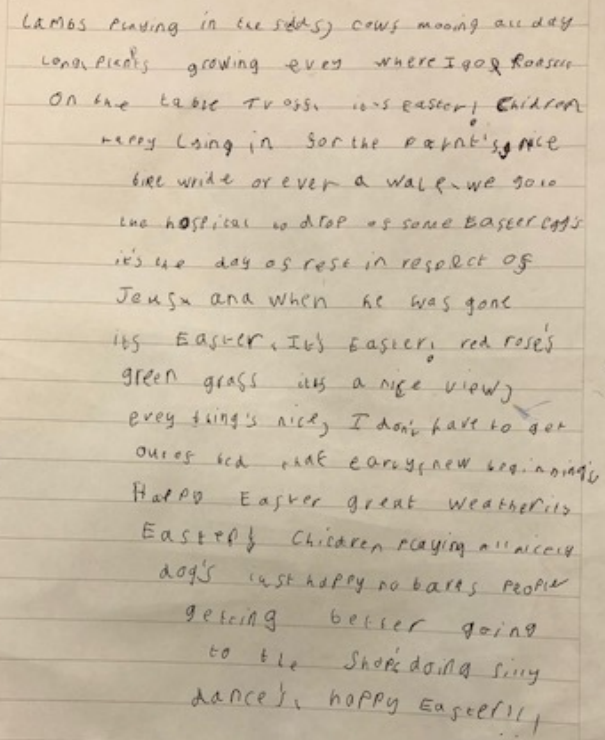 Lambs Playing in the , cows mooing all day
Long, Plants growing evey where I go
On the table . it's easter! Children
Happy in for the nice
bike or even a walk, we go to
the hospital to drop of some Easter egg's
it's the day of rest in respect of
and when he was gone
its Easter, It's Easter! red rose's
green grass its a nice view,
evey thing's nice, I don't have to get
out of bed that early, new beginning's
Happy Easter great weather its
Easter! Children Playing all nicely
dog's Just happy no barks People
getting better going
to the Shop's doing silly
dance's, happy Easter!!!